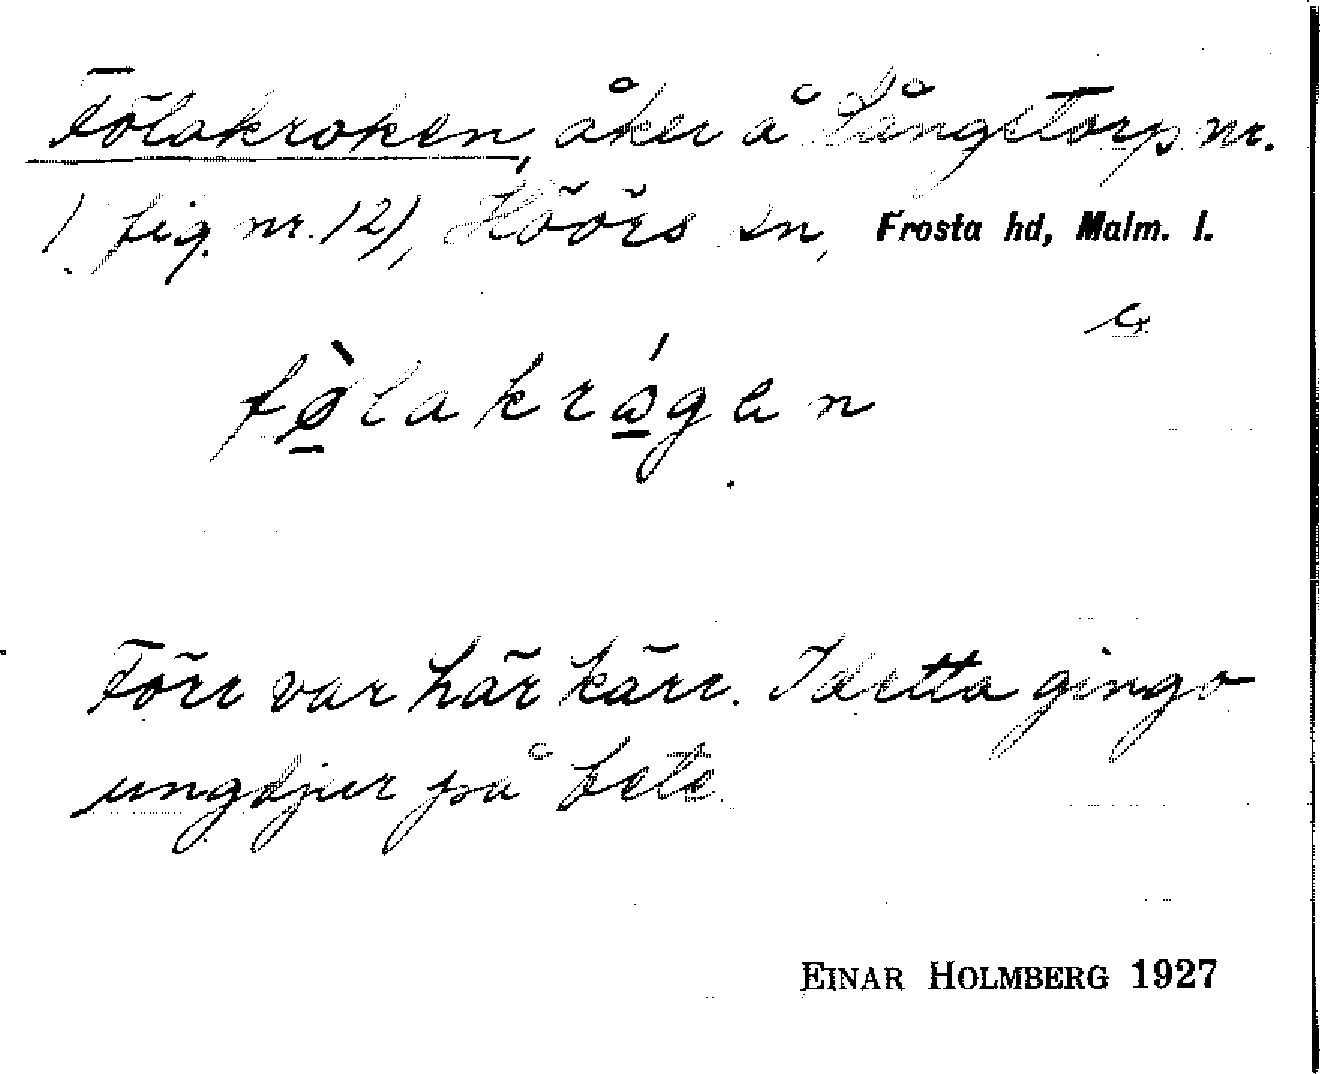 Fölakroken, åker å Långstorp nr.
1 fig. nr. 12), Höörs sn, Frosta hd, Malm. l.
fø̀lakrågen
Förr var här kärr. I detta gingo
ungdjur på bete.
EINAR HOLMBERG 1927